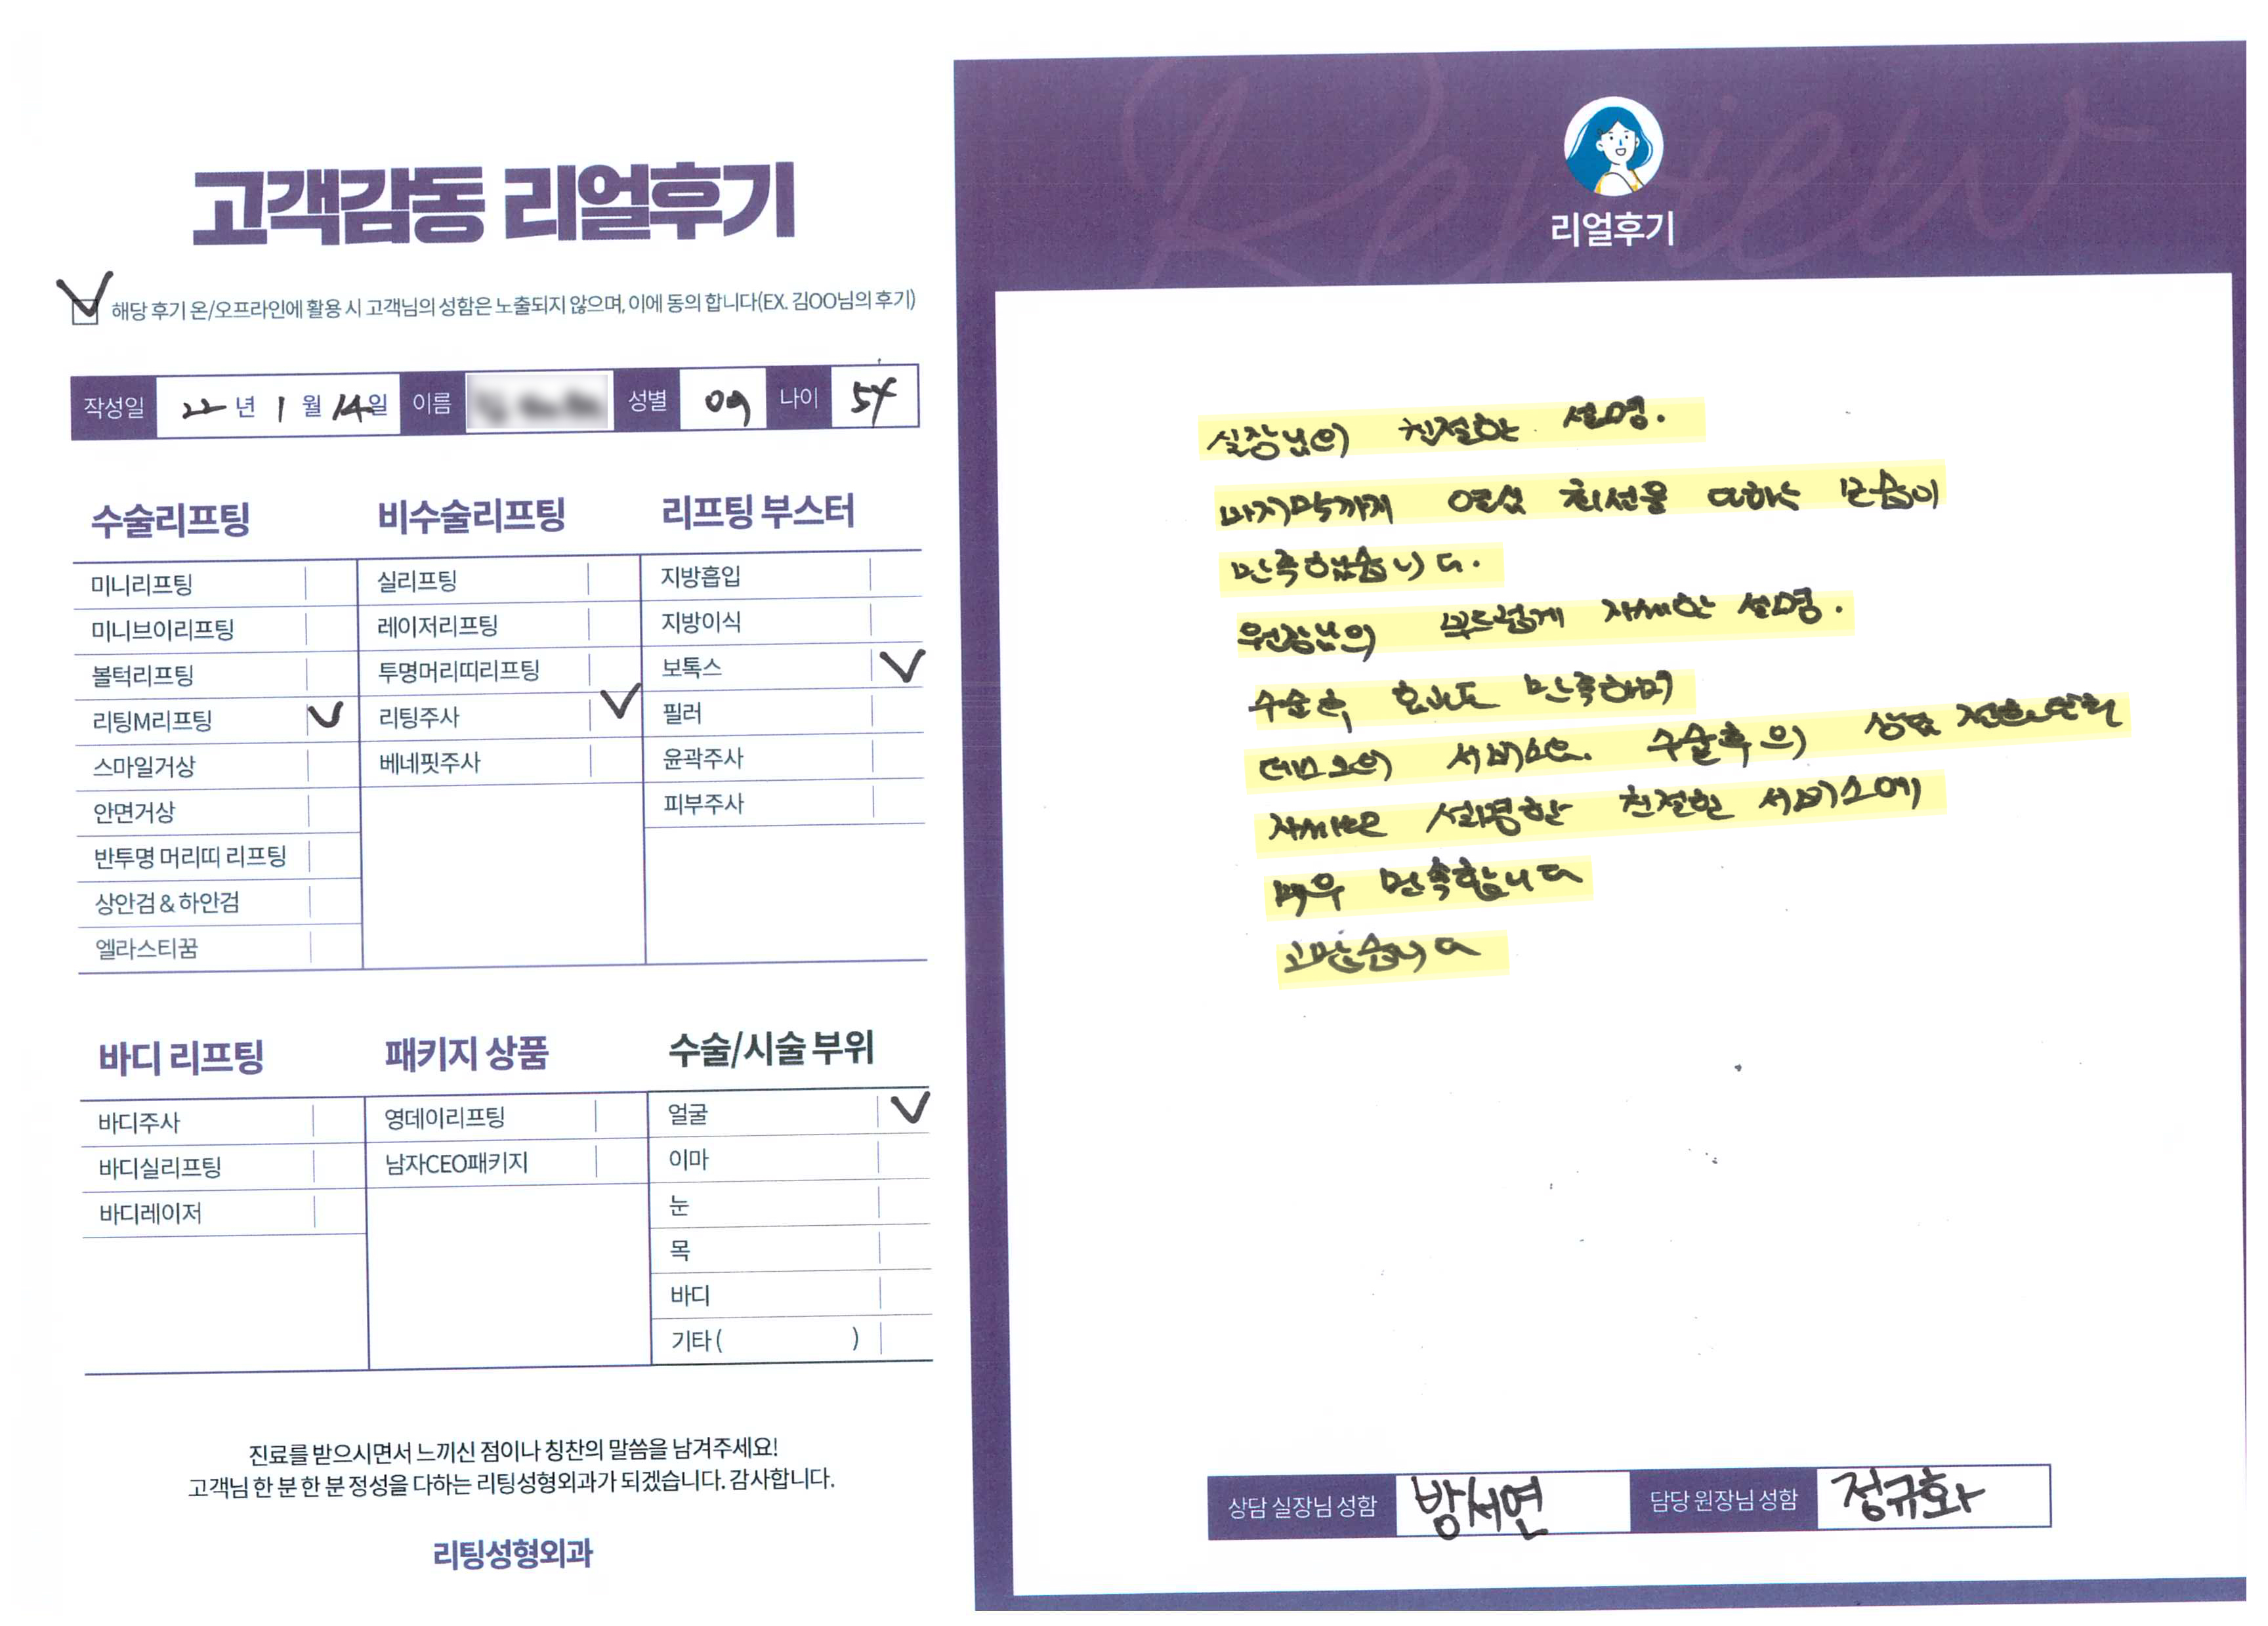 고객감동 리얼후기
해당 후기 온/오프라인에 활용 시 고객님의 성함은 노출되지 않으며, 이에 동의 합니다(EX. 김OO님의 후기)
작성일 22년 1월 14일 이름 성별 여 나이 54
수술리프팅
미니리프팅
미니브이리프팅
볼턱리프팅
리팅M리프팅
스마일거상
안면거상
반투명 머리띠 리프팅
상안검 & 하안검
엘라스티꿈
비수술리프팅
실리프팅
레이저리프팅
투명머리띠리프팅
리팅주사
베네핏주사
리프팅 부스터
지방흡입
지방이식
보톡스
필러
윤곽주사
피부주사
바디 리프팅
바디주사
바디실리프팅
바디레이저
패키지 상품
영데이리프팅
남자CEO패키지
수술/시술 부위
얼굴
이마
눈
목
바디
기타 ( )
진료를 받으시면서 느끼신 점이나 칭찬의 말씀을 남겨주세요!
고객님 한 분 한 분 정성을 다하는 리팅성형외과가 되겠습니다. 감사합니다.
리팅성형외과
Review
리얼후기
실장님의 친절한 설명.
마지막까지 열심 최선을 다하는 모습이
만족했습니다.
원장님의 부드럽게 자세한 설명.
수술후 효과도 만족하며
서비스. 수술후의 상담
설명한 친절한 서비스에
매우 만족합니다
고맙습니다
상담 실장님 성함 방서연 담당 원장님 성함 정규화